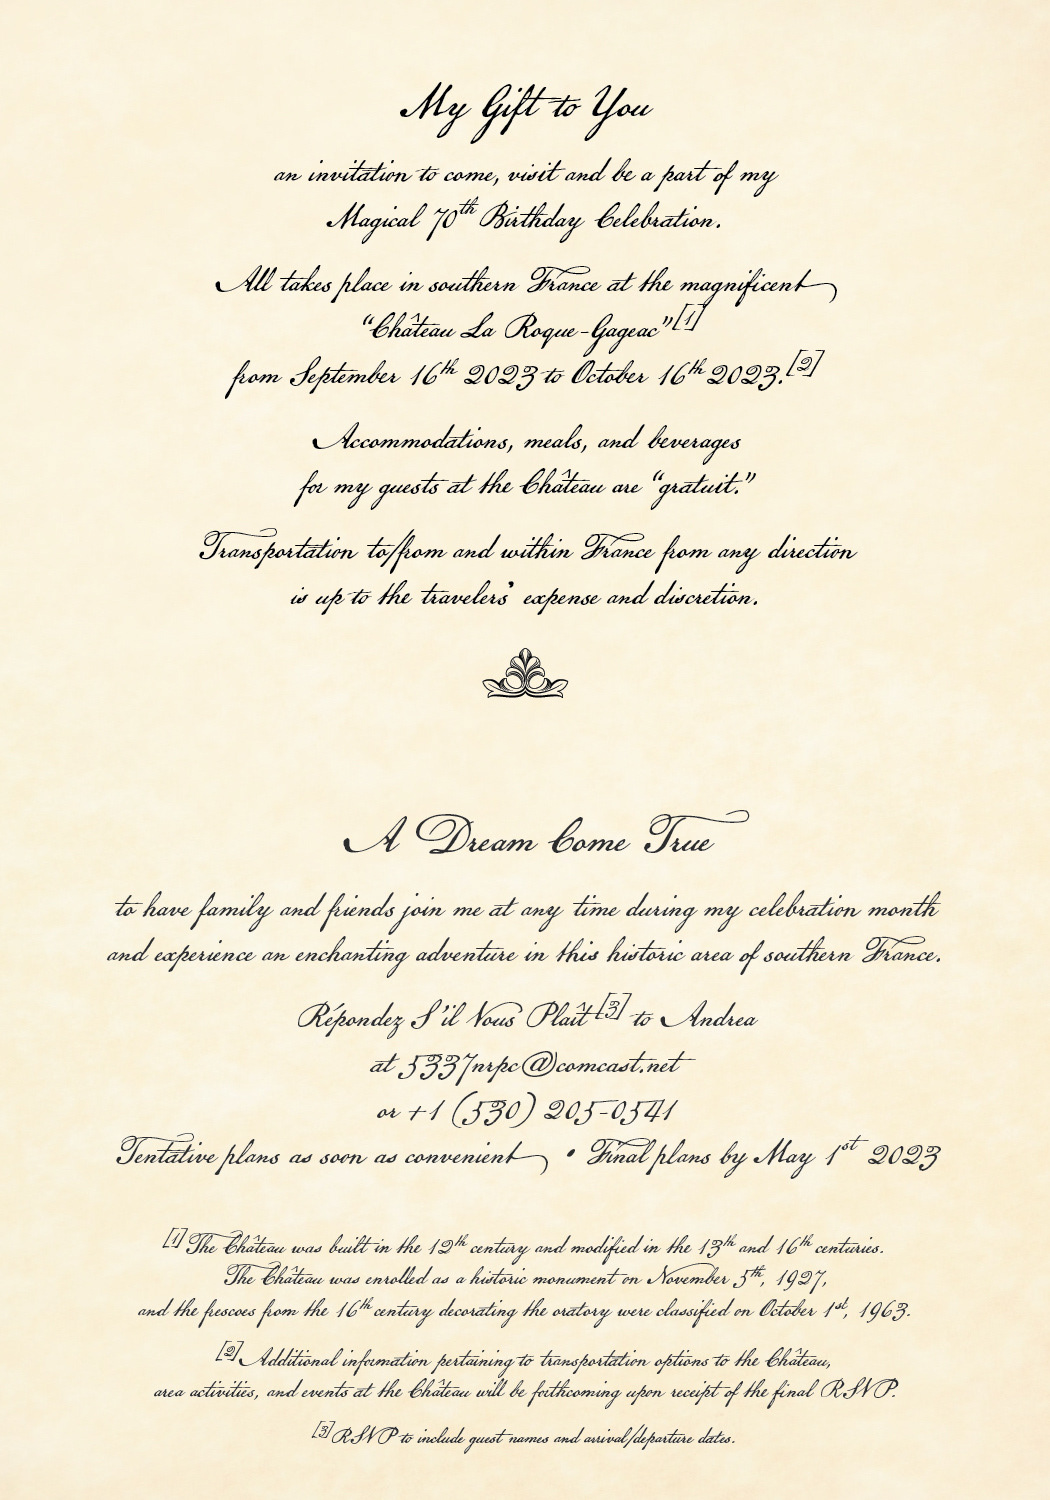 My Gift to You
an invitation to come, visit and be a part of my
Magical 70th Birthday Celebration.
All takes place in southern France at the magnificent
“Château La Roque-Gageac”[1]
from September 16th 2023 to October 16th 2023.[2]
Accommodations, meals, and beverages
for my guests at the Château are “gratuit.”
Transportation to/from and within France from any direction
is up to the travelers’ expense and discretion.
A Dream Come True
to have family and friends join me at any time during my celebration month
and experience an enchanting adventure in this historic area of southern France.
Répondez S’il Vous Plaît[3] to Andrea
at 5337nrpc@comcast.net
or +1 (530) 205-0541
Tentative plans as soon as convenient • Final plans by May 1st 2023
[1] The Château was built in the 12th century and modified in the 13th and 16th centuries.
The Château was enrolled as a historic monument on November 5th, 1927,
and the frescoes from the 16th century decorating the oratory were classified on October 1st, 1963.
[2] Additional information pertaining to transportation options to the Château,
area activities, and events at the Château will be forthcoming upon receipt of the final RSVP.
[3] RSVP to include guest names and arrival/departure dates.